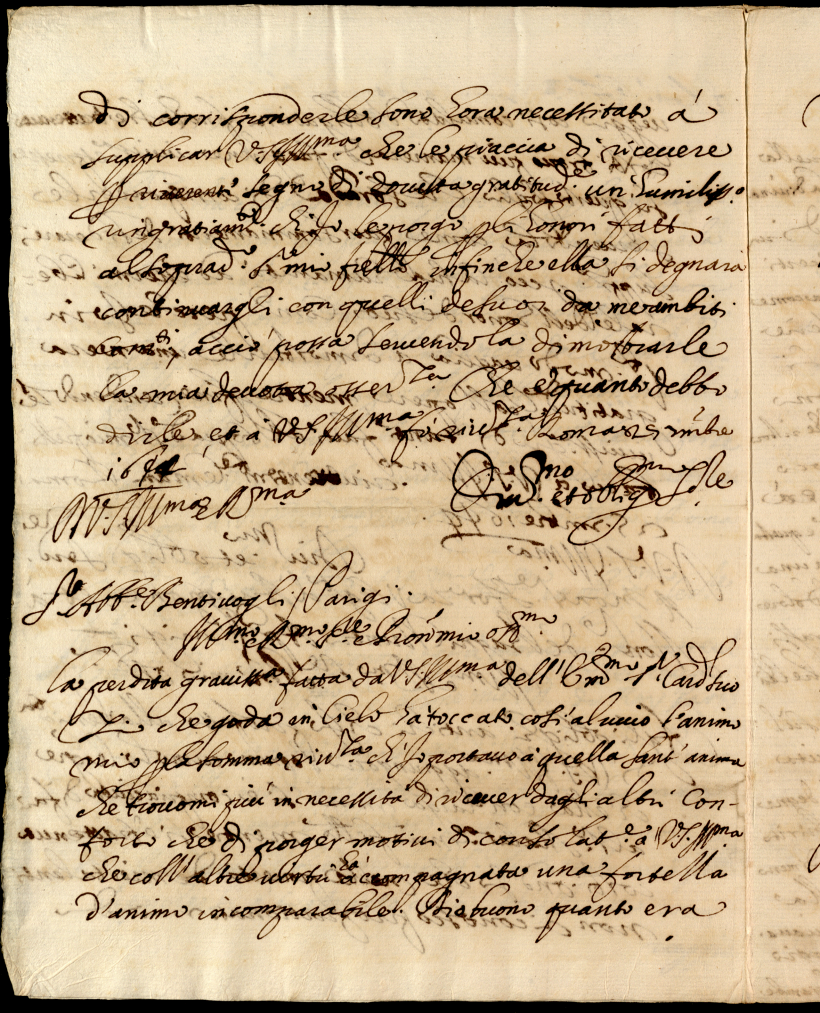 di corrisponderle sono hora necessitato à
supplicar V.S.Ill.ma che le piaccia di riceuere
segno di douuta gratitud.e un humiliss.o
ringratiam.to ch'Jo le porgo p gli honori fatti
al soprad.o S.r mio fr̃ello infinche ella si degnarà
continuargli con quelli de suoi da me ambiti
acciò possa seruendola dimostrarle
la mia deuota osser.za che è quanto debbo
dirle, et à V.S.Ill.ma fò riu.za Roma 25 9mbre
1644
D V.S.Ill.ma e R.ma Diu.mo et oblig.mo S.re
S.r Abb.e Bentiuogli Parigi.
Ill.mo e R.mo S.re e Prone mio oss.mo
La perdita grauiss.a fatta da V.S.Ill.ma dell' Em.mo S.r Card. suo
Z. che goda in Cielo hà toccato cosi al uiuo l'animo
mio p la somma riu.za ch'Jo portauo à quella sant'anima
che trouomi più in necessità di riceuer dagli altri con-
forto che di porger motiui di consolat.e à V.S.Ill.ma
che coll'altre uirtù hà accompagnata una fortezza
d'animo incomparabile. Dio buono quanto era